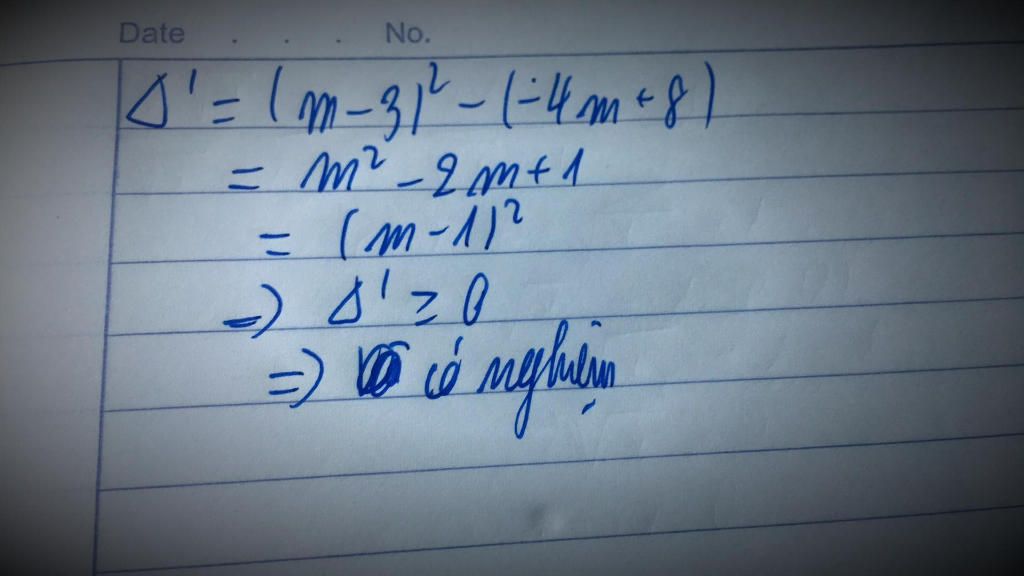 Date . . . No.
Δ' = (m - 3)² - (-4m + 8)
= m² - 2m + 1
= (m - 1)²
=) Δ' ≥ 0
=) có nghiệm